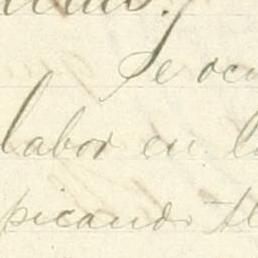 Se ocu
labor en l
picando